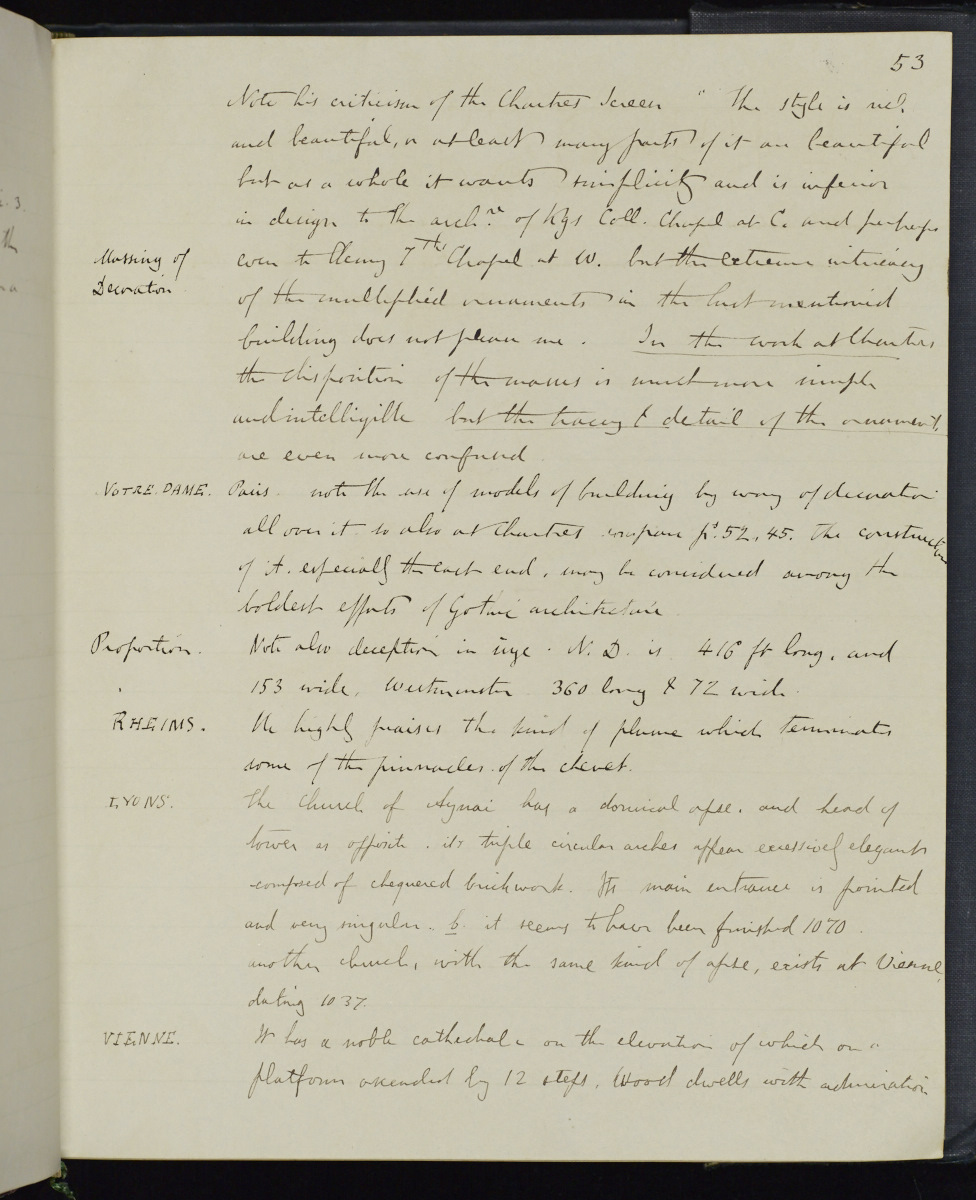 53
Note his criticism of the Chartres Screen " The style is rich
and beautiful, or at least many parts of it are beautiful
but as a whole it wants simplicity and is inferior
in design to the archre of Kgs Coll. Chapel at C. and perhaps
Massing of Decoration
even to Henry 7ths Chapel at W. but the extreme intricacy
of the multiplied ornaments in the last mentioned
building does not please me. In the work at Chartres
the disposition of the masses is much more simple
and intelligible but the tracery & detail of the ornament,
are even more confused
NOTRE DAME. Paris. note the use of models of building by way of decoration
all over it. so also at Chartres compare ps. 52, 45. The construction
of it. especially the east end, may be considered among the
boldest efforts of Gothic architecture
Proportion. Note also deception in size. N. D. is 416 ft long, and
153 wide, Westminster 360 long & 72 wide.
RHEIMS. He highly praises the kind of plume which terminates
some of the pinnacles of the chevet.
LYONS. The church of Aynai has a domical apse. and head of
tower as opposite. its triple circular arches appear excessively elegant
composed of chequered brickwork. Its main entrance is pointed
and very singular. b. it seems to have been finished 1070.
another church, with the same kind of apse, exists at Vienne,
dating 1037.
VIENNE. It has a noble cathedral on the elevation of which on a
platform ascended by 12 steps, Wood dwells with admiration